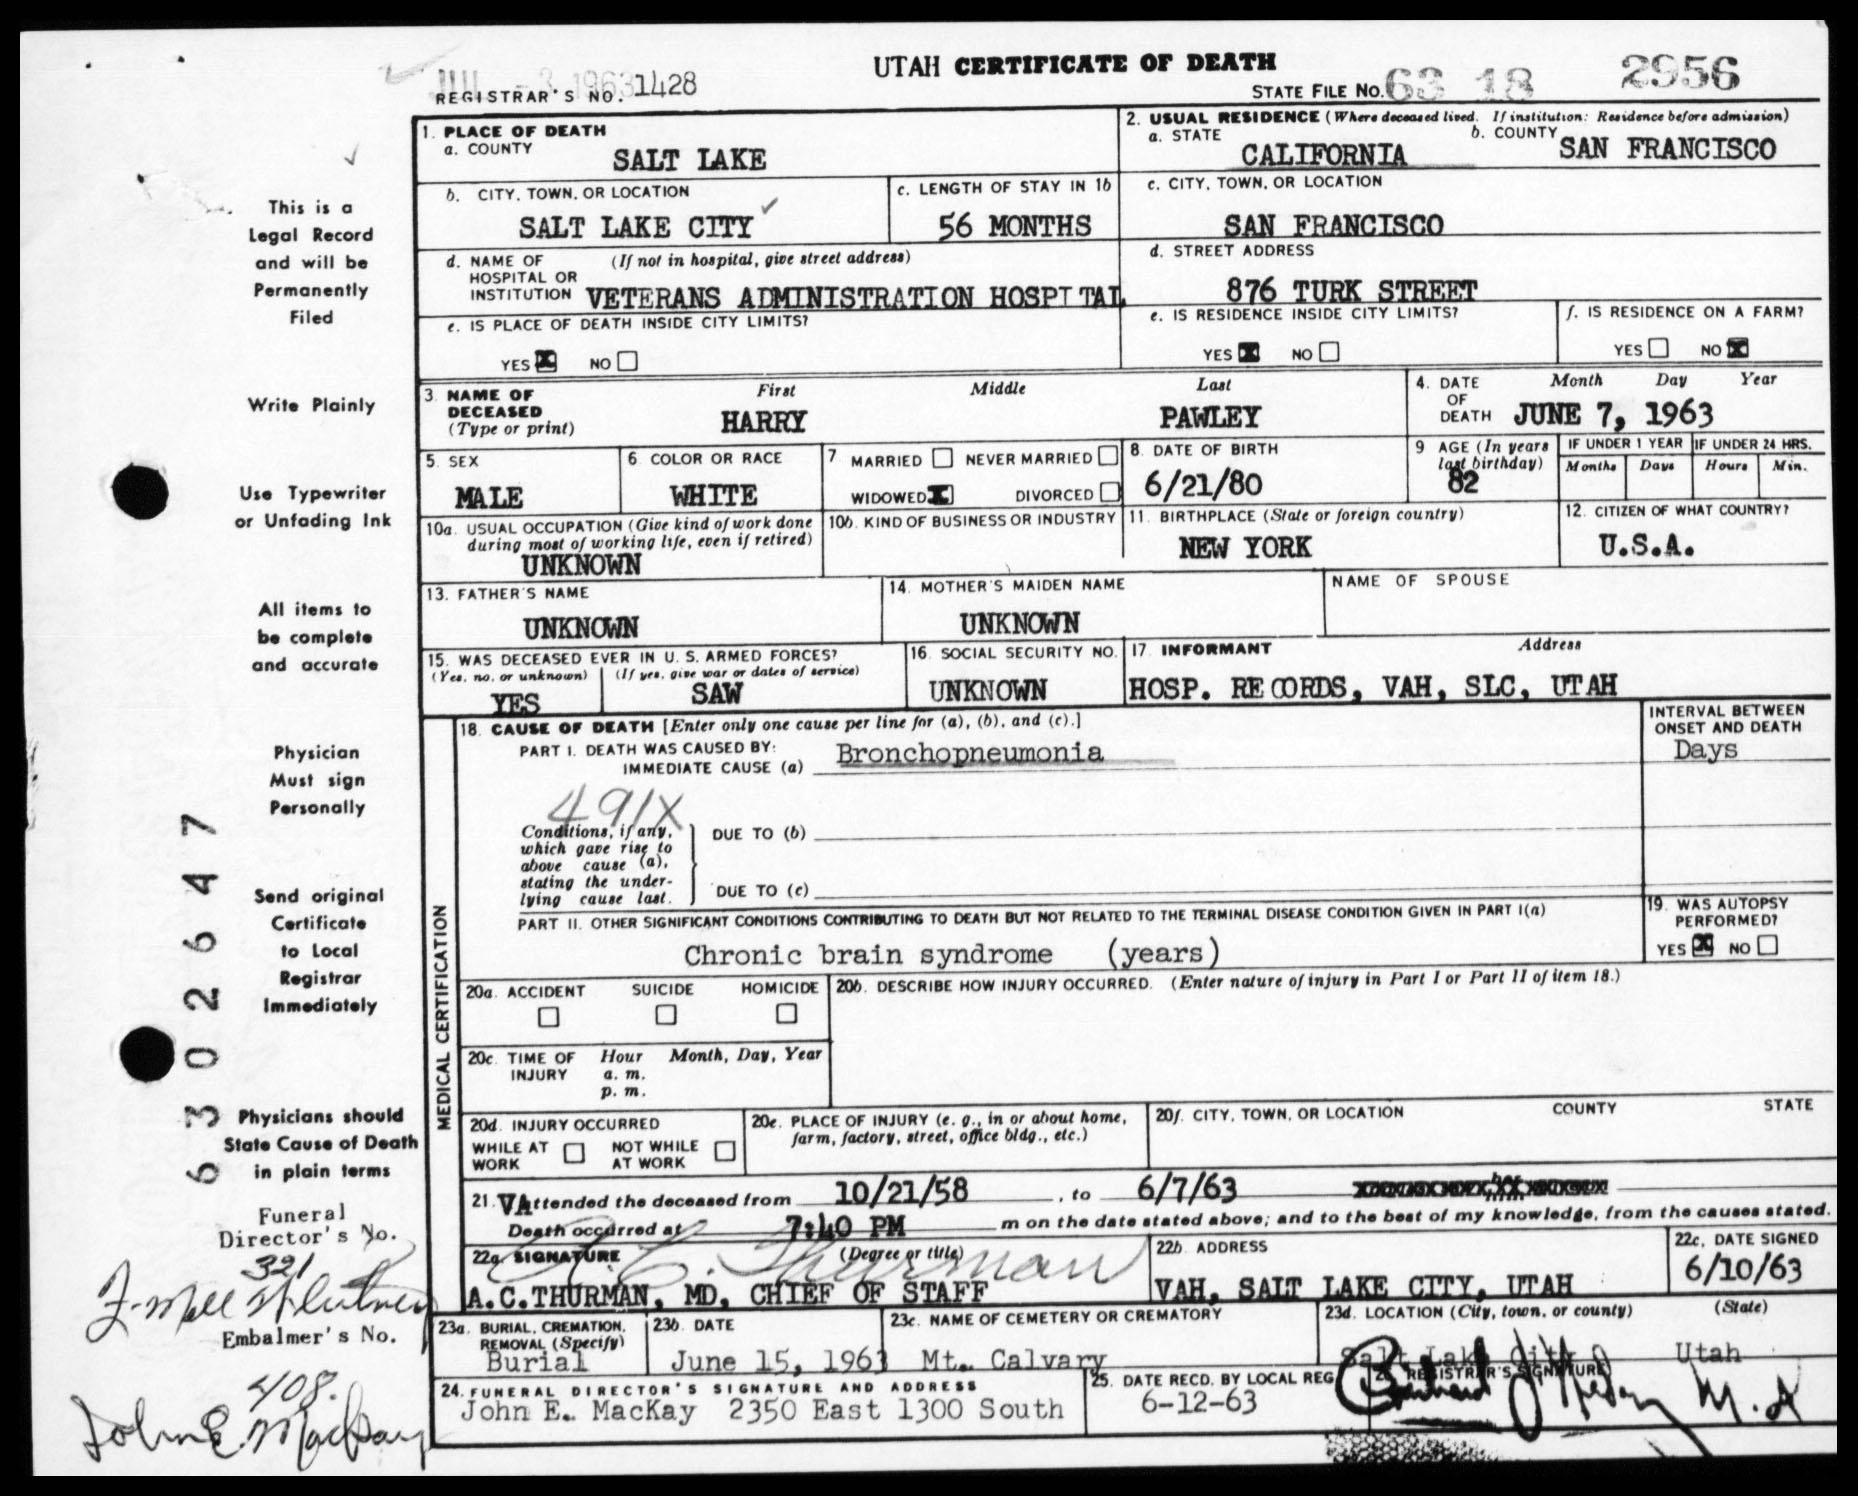 UTAH CERTIFICATE OF DEATH
JUL -3 1963
REGISTRAR'S NO. 1428
STATE FILE NO. 63 18 2956
1. PLACE OF DEATH
a. COUNTY
SALT LAKE
2. USUAL RESIDENCE (Where deceased lived. If institution: Residence before admission)
a. STATE
CALIFORNIA
b. COUNTY
SAN FRANCISCO
b. CITY, TOWN, OR LOCATION
SALT LAKE CITY
c. LENGTH OF STAY IN 1b
56 MONTHS
c. CITY, TOWN, OR LOCATION
SAN FRANCISCO
d. NAME OF HOSPITAL OR INSTITUTION
(If not in hospital, give street address)
VETERANS ADMINISTRATION HOSPITAL
d. STREET ADDRESS
876 TURK STREET
e. IS PLACE OF DEATH INSIDE CITY LIMITS?
YES X NO
e. IS RESIDENCE INSIDE CITY LIMITS?
YES X NO
f. IS RESIDENCE ON A FARM?
YES NO X
3. NAME OF DECEASED (Type or print)
First Middle Last
HARRY PAWLEY
4. DATE OF DEATH
Month Day Year
JUNE 7, 1963
5. SEX
MALE
6. COLOR OR RACE
WHITE
7 MARRIED NEVER MARRIED
WIDOWED X DIVORCED
8. DATE OF BIRTH
6/21/80
9 AGE (In years last birthday)
82
IF UNDER 1 YEAR
Months Days
IF UNDER 24 HRS.
Hours Min.
10a. USUAL OCCUPATION (Give kind of work done
during most of working life, even if retired)
UNKNOWN
10b. KIND OF BUSINESS OR INDUSTRY
11. BIRTHPLACE (State or foreign country)
NEW YORK
12. CITIZEN OF WHAT COUNTRY?
U.S.A.
13. FATHER'S NAME
UNKNOWN
14. MOTHER'S MAIDEN NAME
UNKNOWN
NAME OF SPOUSE
15. WAS DECEASED EVER IN U. S. ARMED FORCES?
(Yes, no, or unknown) (If yes, give war or dates of service)
YES SAW
16. SOCIAL SECURITY NO.
UNKNOWN
17. INFORMANT Address
HOSP. RECORDS, VAH, SLC, UTAH
MEDICAL CERTIFICATION
18. CAUSE OF DEATH [Enter only one cause per line for (a), (b), and (c).]
PART I. DEATH WAS CAUSED BY:
IMMEDIATE CAUSE (a) Bronchopneumonia
INTERVAL BETWEEN ONSET AND DEATH
Days
491X
Conditions, if any,
which gave rise to
above cause (a),
stating the under-
lying cause last.
DUE TO (b)
DUE TO (c)
PART II. OTHER SIGNIFICANT CONDITIONS CONTRIBUTING TO DEATH BUT NOT RELATED TO THE TERMINAL DISEASE CONDITION GIVEN IN PART I(a)
Chronic brain syndrome (years)
19. WAS AUTOPSY PERFORMED?
YES X NO
20a. ACCIDENT SUICIDE HOMICIDE
20b. DESCRIBE HOW INJURY OCCURRED. (Enter nature of injury in Part I or Part II of item 18.)
20c. TIME OF INJURY
Hour Month, Day, Year
a. m.
p. m.
20d. INJURY OCCURRED
WHILE AT WORK NOT WHILE AT WORK
20e. PLACE OF INJURY (e. g., in or about home,
farm, factory, street, office bldg., etc.)
20f. CITY, TOWN, OR LOCATION COUNTY STATE
21. VA ttended the deceased from 10/21/58, to 6/7/63
Death occurred at 7:40 PM m on the date stated above; and to the best of my knowledge, from the causes stated.
22a. SIGNATURE (Degree or title)
A C Thurman
A.C.THURMAN, MD, CHIEF OF STAFF
22b. ADDRESS
VAH, SALT LAKE CITY, UTAH
22c. DATE SIGNED
6/10/63
23a. BURIAL, CREMATION, REMOVAL (Specify)
Burial
23b. DATE
June 15, 1963
23c. NAME OF CEMETERY OR CREMATORY
Mt. Calvary
23d. LOCATION (City, town, or county) (State)
Salt Lake City Utah
24. FUNERAL DIRECTOR'S SIGNATURE AND ADDRESS
John E. MacKay 2350 East 1300 South
25. DATE RECD. BY LOCAL REG
6-12-63
REGISTRAR'S SIGNATURE
This is a
Legal Record
and will be
Permanently
Filed
Write Plainly
Use Typewriter
or Unfading Ink
All items to
be complete
and accurate
Physician
Must sign
Personally
Send original
Certificate
to Local
Registrar
Immediately
Physicians should
State Cause of Death
in plain terms
Funeral
Director's No.
321
Embalmer's No.
408.
John E. MacKay
6302647